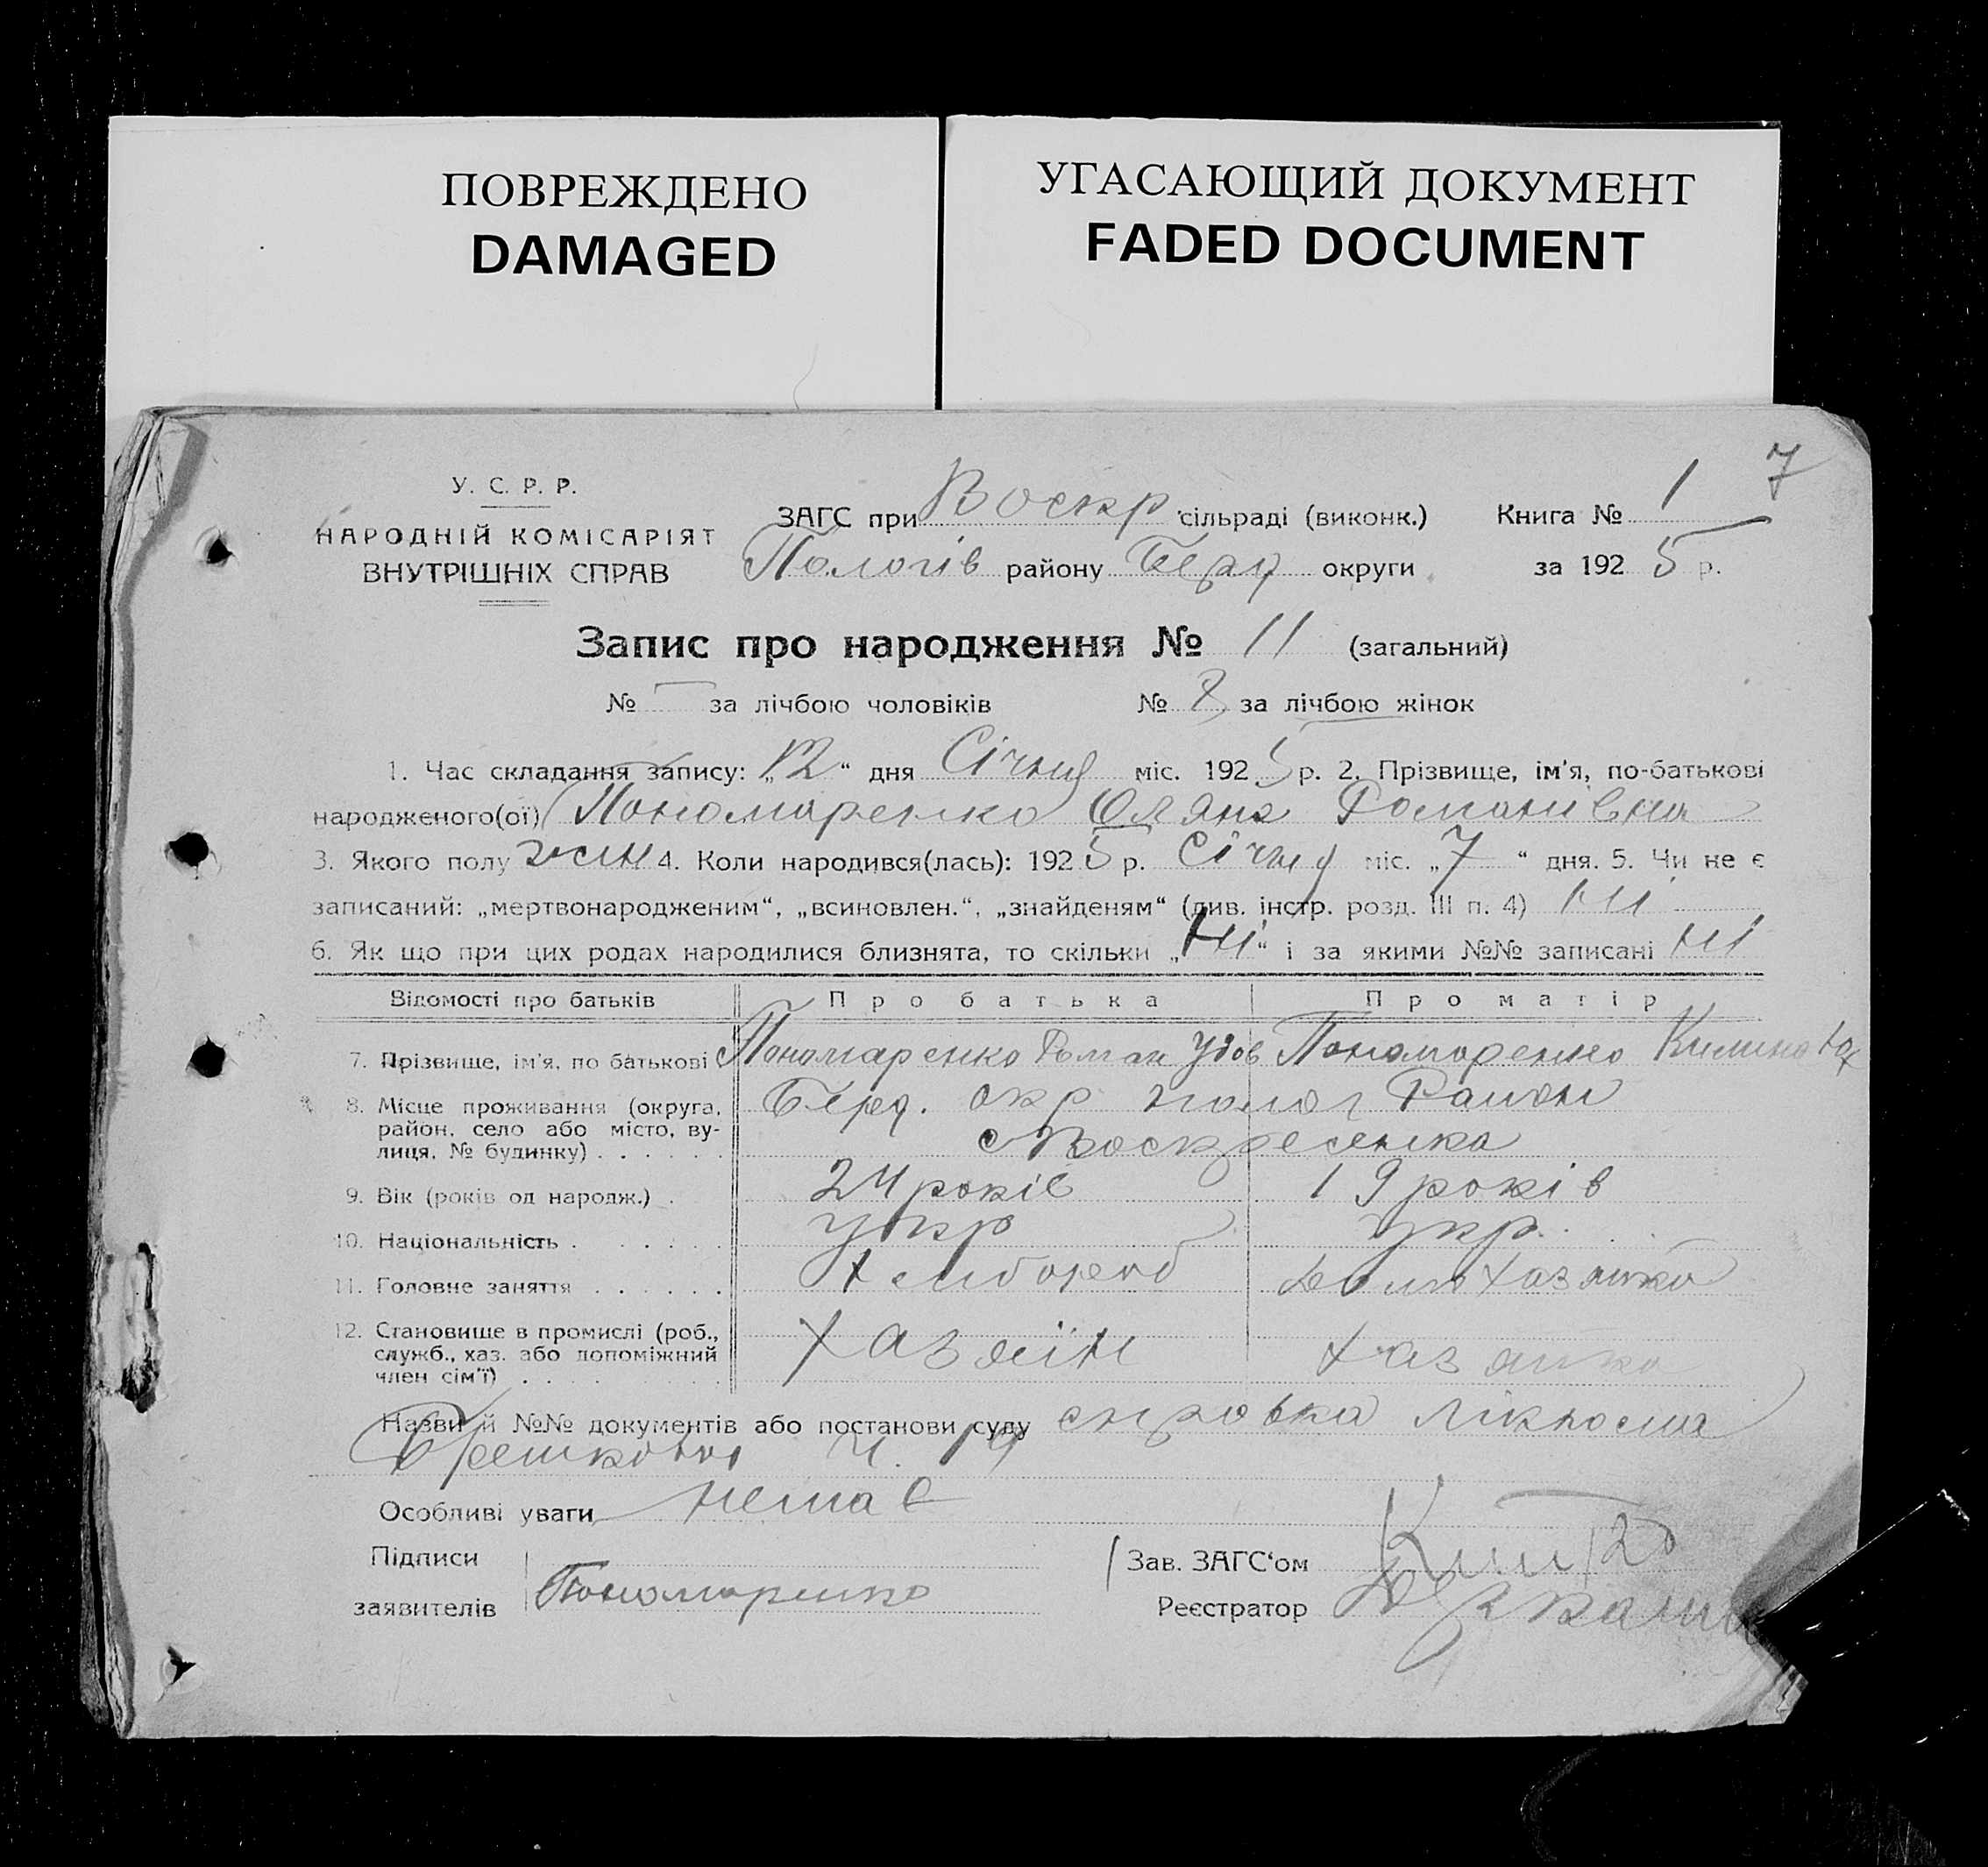 ПОВРЕЖДЕНО
DAMAGED
УГАСАЮЩИЙ ДОКУМЕНТ
FADED DOCUMENT
7
У. С. Р. Р.
НАРОДНІЙ КОМІСАРІЯТ
ВНУТРІШНІХ СПРАВ
ЗАГС при Воскр сільраді (виконк.) Книга № 1
Пологів району Берд округи за 1925 р.
Запис про народження № 11 (загальний)
№ — за лічбою чоловіків № 8 за лічбою жінок
1. Час складання запису: „12“ дня Січня міс. 1925 р. 2. Прізвище, ім'я, по-батькові
народженого(ої) Пономаренко Оляна Романівна
3. Якого полу жін 4. Коли народився(лась): 1925 р. Січня міс. „7“ дня. 5. Чи не є
записаний: „мертвонародженим“, „всиновлен.“, „знайденям“ (див. інстр. розд. III п. 4) ні
6. Як що при цих родах народилися близнята, то скільки „ні“ і за якими №№ записані ні
Відомості про батьків Про батька Про матір
7. Прізвище, ім'я, по батькові Пономаренко Роман Пономаренко
8. Місце проживання (округа, район, село або місто, вулиця, № будинку) Берд. окр Полог Район
с Воскресенка
9. Вік (років од народж.) 24 років 19 років
10. Національність укр укр.
11. Головне заняття Хлібороб Домохазяйка
12. Становище в промислі (роб., служб., хаз. або допоміжний член сім'ї) Хазяїн Хазяйка
Назви й №№ документів або постанови суду
Ч. 19
Особливі уваги немає
Підписи
заявителів Пономаренко
Зав. ЗАГС‘ом
Реєстратор